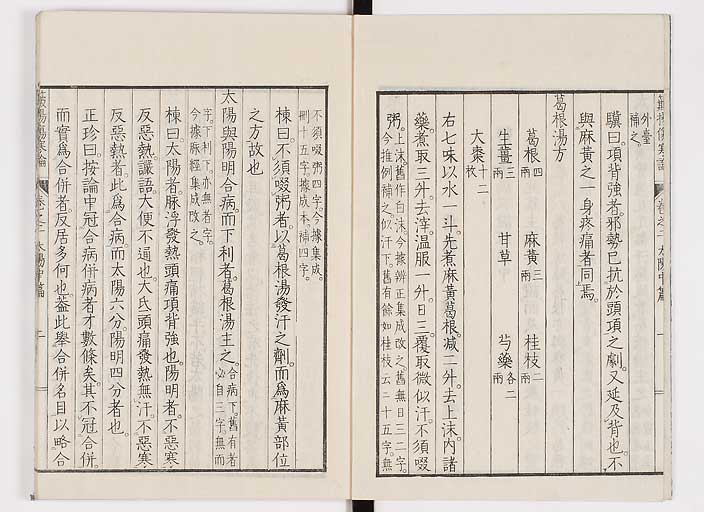 外臺
補之
驥曰項背強者邪勢已抗於頭項之劇又延及背也不
與麻黃之一身疼痛者同焉
葛根湯方
葛根四兩 麻黃三兩 桂枝二兩
生薑三兩 甘草 芍藥各二兩
大棗十二枚
右七味以水一斗先煮麻黃葛根減二升去上沫內諸
藥煮取三升去滓溫服一升日三覆取微似汗不須啜
粥上沫舊作白沫今據辨正集成改之舊無日三二字
今推例補之似汗下舊有餘如桂枝云云十五字無
不須啜粥四字今據集成
刪十五字據成本補四字
棟曰不須啜粥者以葛根湯發汗之劑而爲麻黃部位
之方故也
太陽與陽明合病而下利者葛根湯主之合病下舊有者
必自三字無而
字下利下亦無者字
今據脈經集成改之
棟曰太陽者脈浮發熱頭痛項背強也陽明者不惡寒
反惡熱讝語大便不通也大氐頭痛發熱無汗不惡寒
反惡熱者此爲合病而太陽六分陽明四分者也
正珍曰按論中冠合病併病者才數條矣其不冠合併
而實爲合併者反居多何也葢此舉合併名目以略合
卷之二 太陽中篇